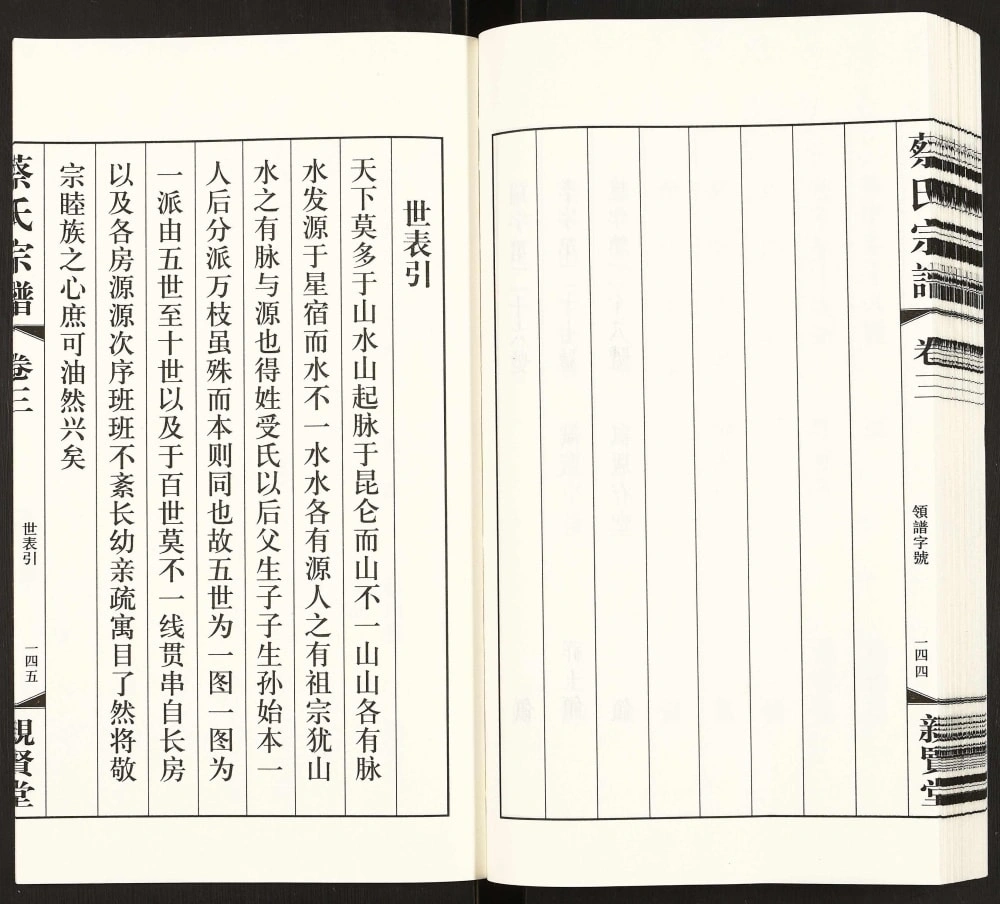 蔡氏宗譜
卷三
領譜字號
一四四
親賢堂
世表引
天下莫多于山水山起脉于昆仑而山不一山山各有脉
水发源于星宿而水不一水水各有源人之有祖宗犹山
水之有脉与源也得姓受氏以后父生子子生孙始本一
人后分派万枝虽殊而本则同也故五世为一图一图为
一派由五世至十世以及于百世莫不一线贯串自长房
以及各房源源次序班班不紊长幼亲疏寓目了然将敬
宗睦族之心庶可油然兴矣
蔡氏宗譜
卷三
世表引
一四五
親賢堂